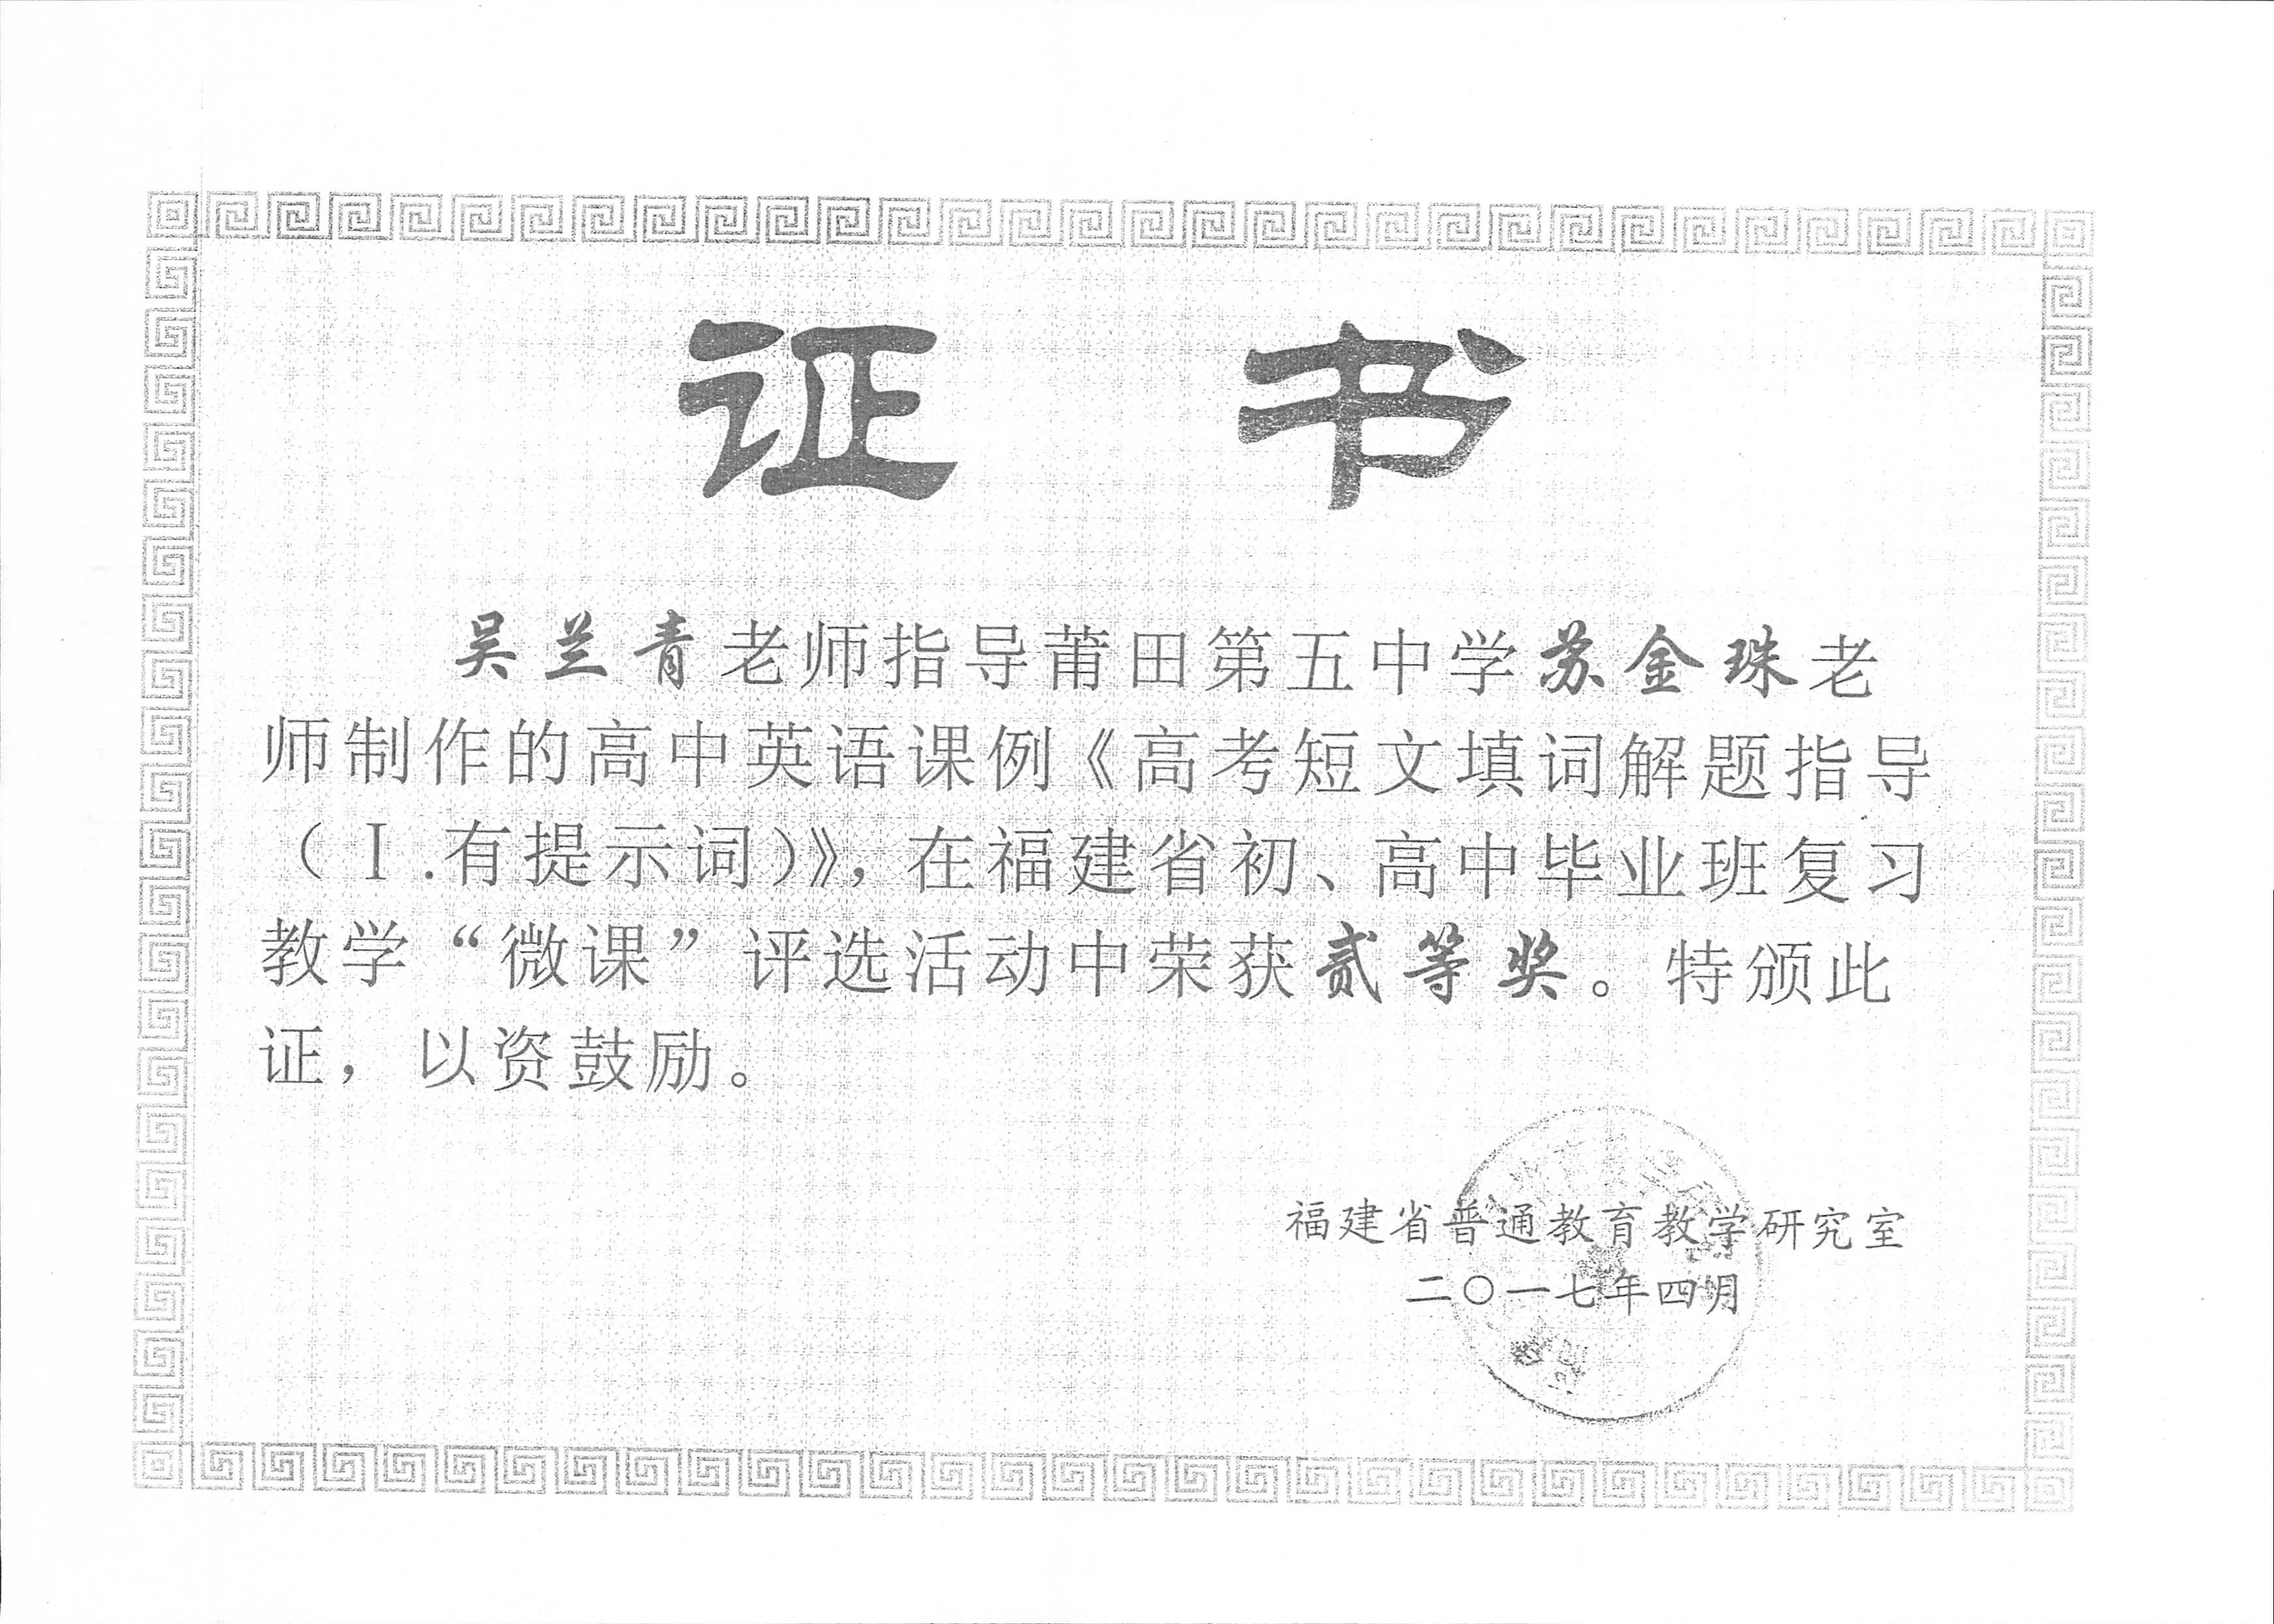 证 书
吴兰青老师指导莆田第五中学苏金珠老
师制作的高中英语课例《高考短文填词解题指导
（Ⅰ.有提示词）》，在福建省初、高中毕业班复习
教学“微课”评选活动中荣获贰等奖。特颁此
证，以资鼓励。
福建省普通教育教学研究室
二〇一七年四月